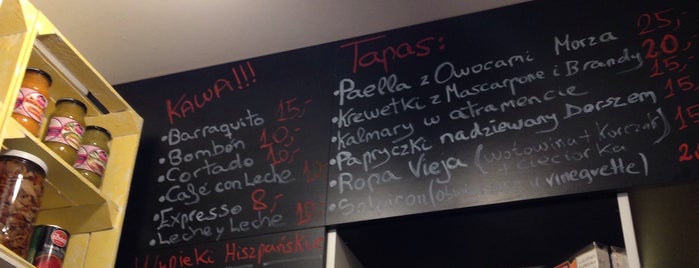 KAWA!!!
Barraquito 15,-
Bombón 10,-
Cortado 10,-
Café con Leche
Expresso 8,-
Leche y Leche 10
Wypieki Hiszpańskie
Tapas:
Paella z Owocami Morza 25,-
Krewetki z Mascarpone i Brandy 20,-
Kalmary w atramencie 15,-
Papryczki nadziewany Dorszem 15,-
Ropa Vieja (wołowina + kurczak) 15
z cieciorka
vinegrette)